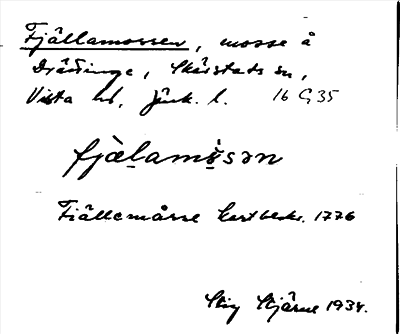 Fjällamossen, mosse å
Drättinge, Skärstads sn,
Vista hd, Jönk. l. 16 G 35
fjälamåsən
Fiällemåsse kartbeskr. 1776
Stig Stjärne 1934.